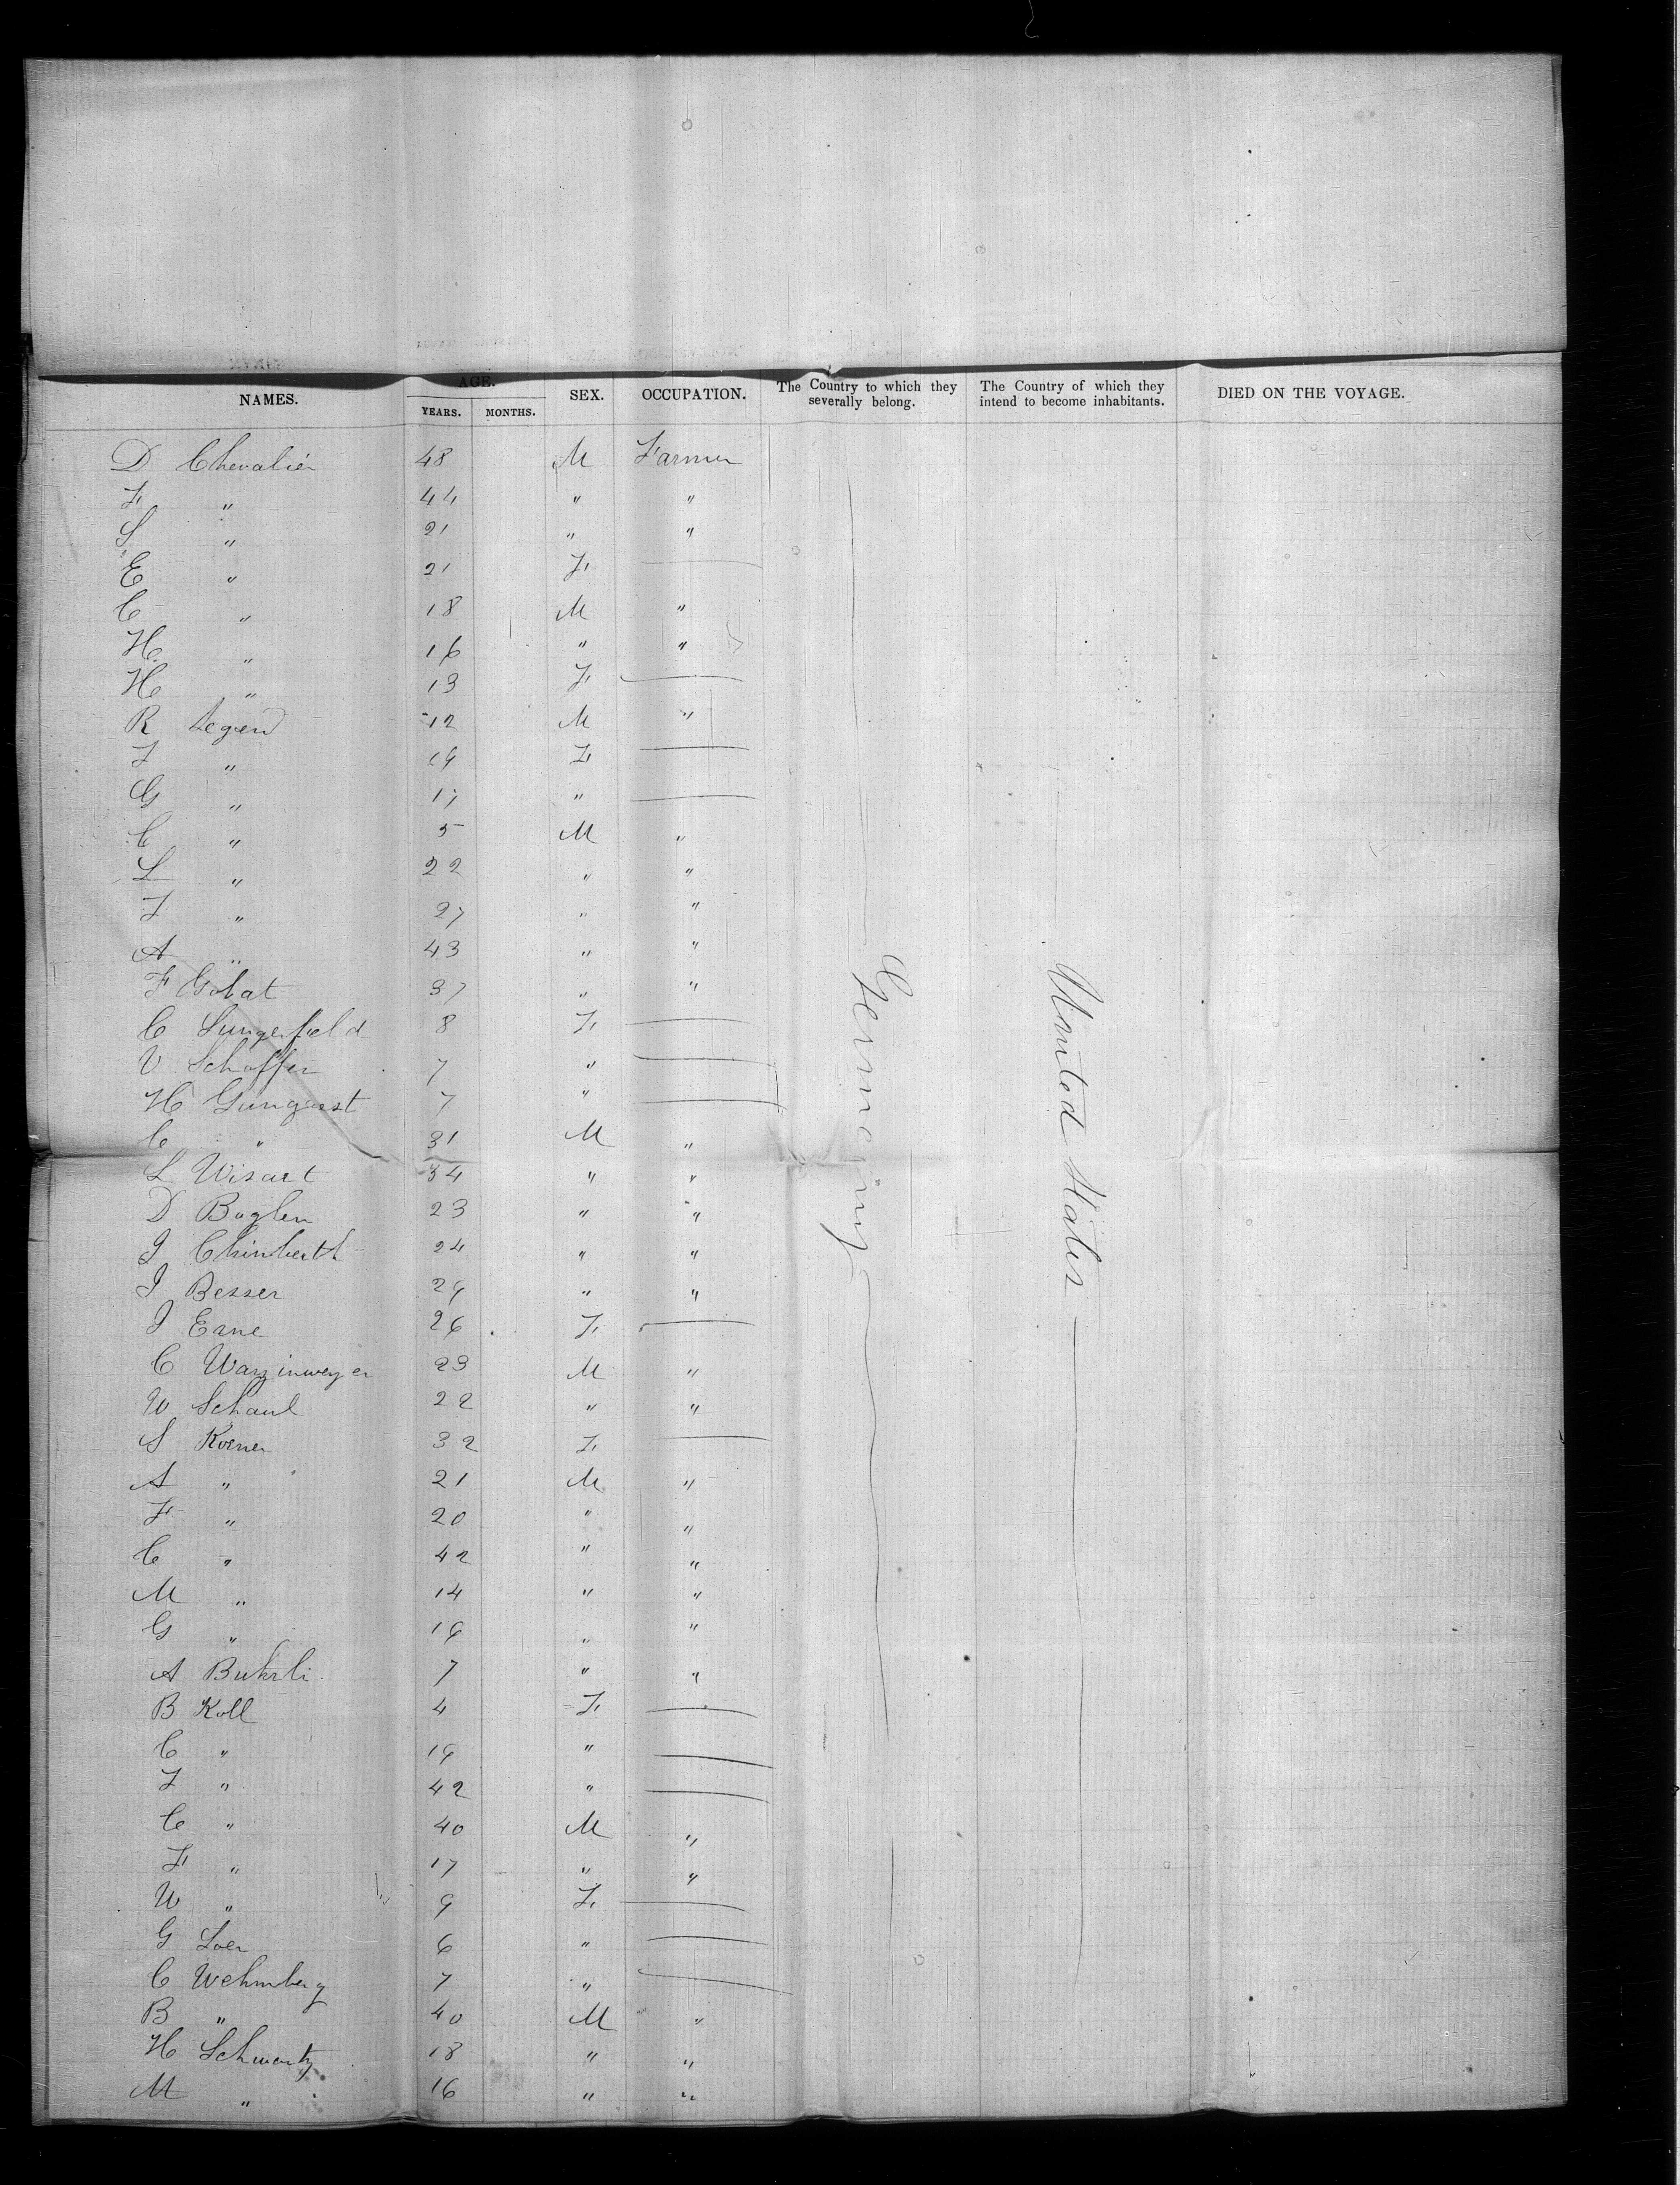 NAMES. AGE. YEARS. MONTHS. SEX. OCCUPATION. The Country to which they severally belong. The Country of which they intend to become inhabitants. DIED ON THE VOYAGE.
D Chevalier 48 M Farmer
F " 44 " "
S " 21 " "
E " 21 F
C " 18 M "
H " 16 " "
H " 13 F
R Legend 12 M "
F " 19 F
G " 17 "
C " 5 M "
L " 22 " "
F " 27 " "
A " 43 " "
F Gobat 37 " "
C Lungerfield 8 F
V Schaffer 7 "
H Gungerst 7 "
C " 31 M "
L Wisart 34 " "
D Boglen 23 " "
J Chimberth 24 " "
J Besser 29 " "
J Erne 26 F
C 23 M "
W Schaul 22 " "
S Koener 32 F
A " 21 M "
F " 20 " "
C " 42 " "
M " 14 " "
G " 19 " "
A Buhrli 7 " "
B Koll 4 F
C " 19 "
F " 42 "
C " 40 M "
F " 17 " "
W " 9 F
G Loer 6 "
C Wehmberg 7 "
B " 40 M "
H Schwartz 18 " "
M " 16 " "
Germany
United States